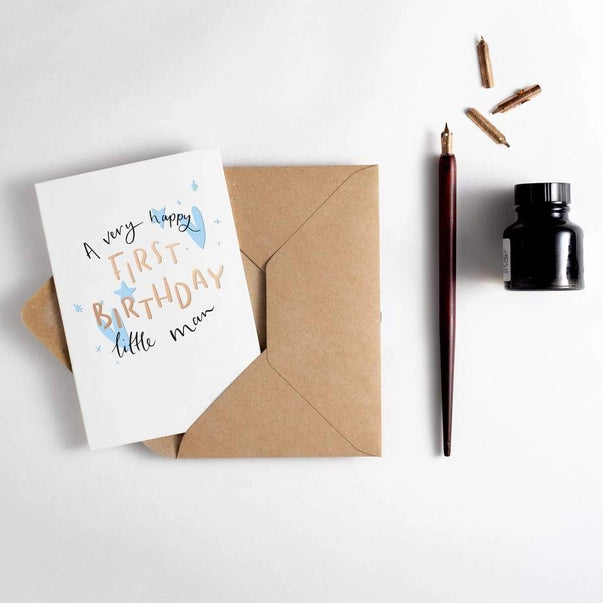 A very happy
FIRST
BIRTHDAY
little man